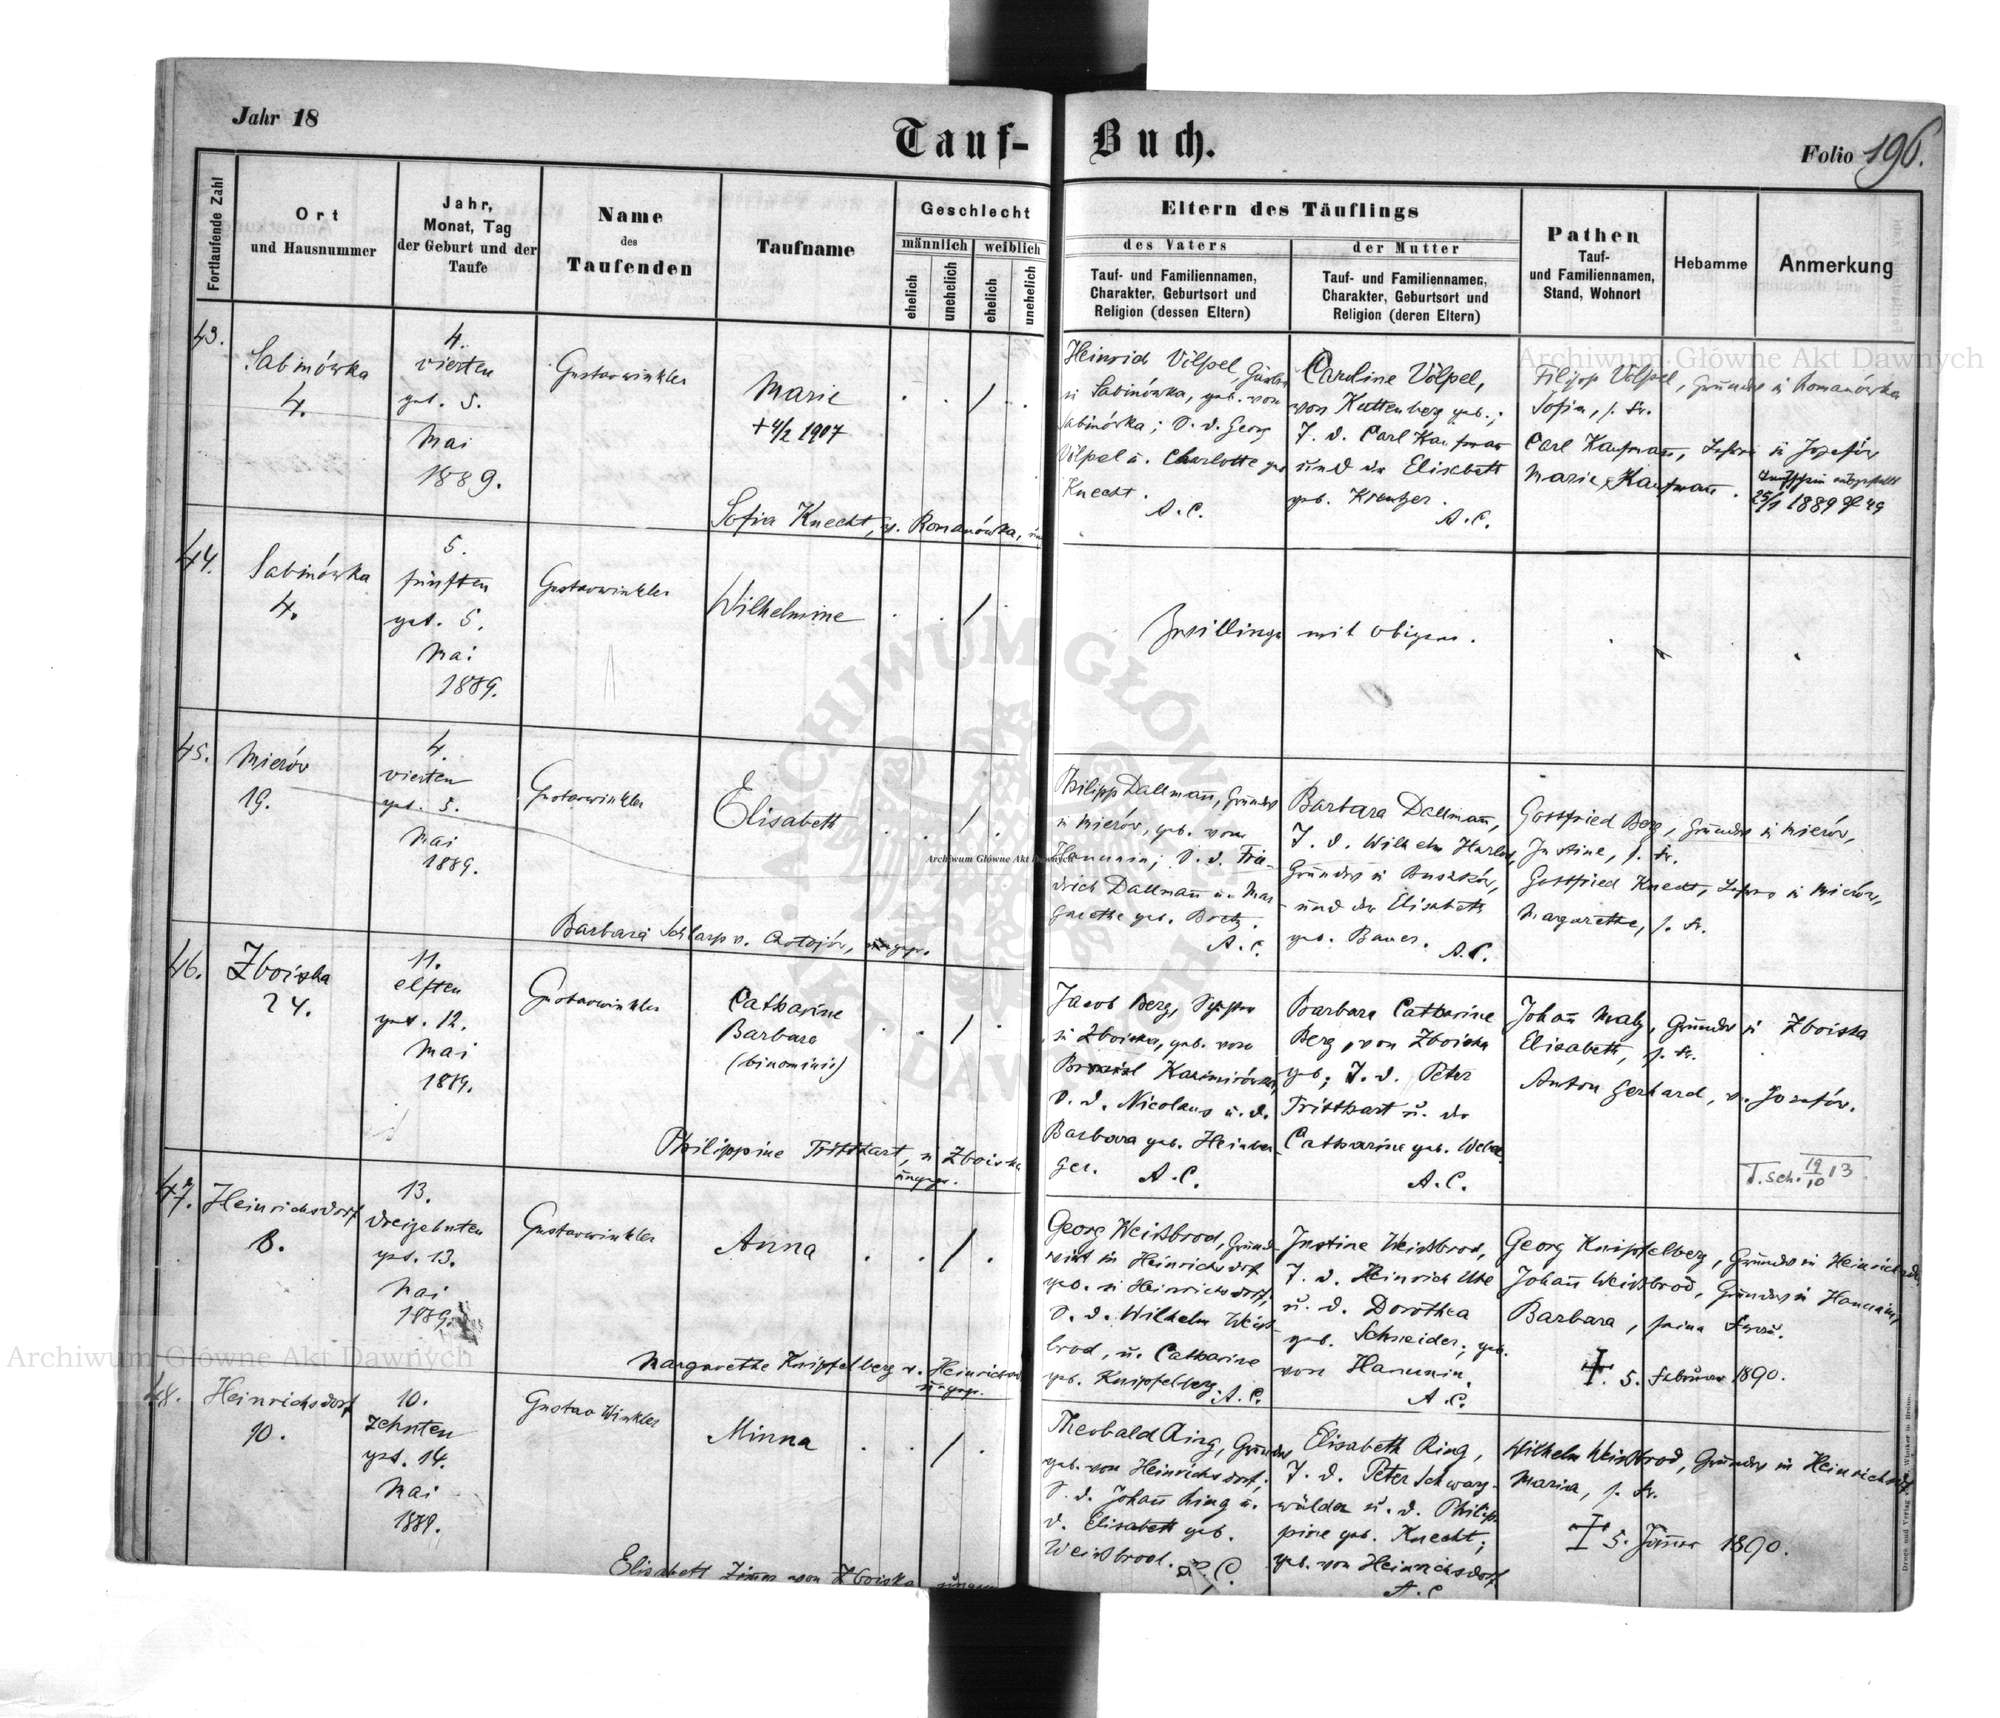 Jahr 18
Tauf-Buch.
Folio 196.
Fortlaufende Zahl
Ort
und Hausnummer
Jahr,
Monat, Tag
der Geburt und der
Taufe
Name
des
Taufenden
Taufname
Geschlecht
männlich
weiblich
ehelich
unehelich
ehelich
unehelich
Eltern des Täuflings
des Vaters
Tauf- und Familiennamen,
Charakter, Geburtsort und
Religion (dessen Eltern)
der Mutter
Tauf- und Familiennamen,
Charakter, Geburtsort und
Religion (deren Eltern)
Pathen
Tauf-
und Familiennamen,
Stand, Wohnort
Hebamme
Anmerkung
43.
Sabinówka
4.
4.
vierten
get. 5.
Mai
1889.
Gustav Winkler
Marie
+ 4/2 1907
/
Heinrich Völpel,
in Sabinówka, geb. von
Sabinówka; S. d. Georg
Völpel u. Charlotte geb
Knecht.
A.C.
Caroline Völpel,
von Kuttenberg geb.;
T. d. Carl Kaufmann
und der Elisabeth
geb. Kreutzer.
A.C.
Filipp Völpel, Grundw in Romanówka
Sofia, s. Fr.
Carl Kaufmann, in Josefów
Marie Kaufmann.
Taufschein ausgestellt
1889 49
Sofia Knecht, v. Romanówka,
44.
Sabinówka
4.
5.
fünften
get. 5.
Mai
1889.
Gustav Winkler
Wilhelmine
/
Zwillinge mit obigem.
45.
Mierów
19.
4.
vierten
get. 5.
Mai
1889.
Gustav Winkler
Elisabeth
/
Philipp Dallmann, Grundw
in Mierów, geb. von
Hanunin; S. d. Frie-
drich Dallmann u. Mar
garethe geb. Bretz.
A.C.
Barbara Dallmann,
T. d. Wilhelm
Grundw in
und der Elisabeth
geb. Bauer.
A.C.
Gottfried Berg, Grundw in Mierów,
Justine, s. Fr.
Gottfried Knecht, in Mierów,
Margarethe, s. Fr.
Barbara Schlarp v. ungepr.
46.
Zboiska
24.
11.
elften
get. 12.
Mai
1889.
Gustav Winkler
Catharine
Barbara
(binominis)
/
Jacob Berg,
in Zboiska, geb. von
Kazimirówka,
S. d. Nicolaus u. d.
Barbara geb. Heinber
ger.
A.C.
Barbara Catharine
Berg, von Zboiska
geb; T. d. Peter
Tritthart u. der
Catharine geb. Weber.
A.C.
Johann Maly, Grundw in Zboiska
Elisabeth, s. Fr.
Anton Gerhard, v. Josefów.
T.sch. 19/10 13
Philippine Tritthart, in Zboiska
ungepr.
47.
Heinrichsdorf
8.
13.
dreizehnten
get. 13.
Mai
1889.
Gustav Winkler
Anna
/
Georg Weißbrod, Grund-
wirt in Heinrichsdorf
geb. in Heinrichsdorf;
S. d. Wilhelm Weiß-
brod, u. Catharine
geb. Knipfelberg.
A.C.
Justine Weißbrod,
T. d. Heinrich Ute
u. d. Dorothea
geb. Schneider; geb.
von Hanunin.
A.C.
Georg Knipfelberg, Grundw in Heinrichsdf.
Johann Weißbrod, Grundw in Hanunin,
Barbara, seine Frau.
†. 5. Februar 1890.
Margarethe Knipfelberg v. Heinrichsd
ungepr.
48.
Heinrichsdorf
10.
10.
zehnten
get. 14.
Mai
1889.
Gustav Winkler
Minna
/
Theobald Ring, Grundw
geb. von Heinrichsdorf;
S. d. Johann Ring u.
d. Elisabeth geb.
Weißbrod.
A.C.
Elisabeth Ring,
T. d. Peter Schwarz-
wälder u. d. Philip
pine geb. Knecht;
geb. von Heinrichsdorf
A.C
Wilhelm Weißbrod, Grundw in Heinrichsdf
Maria, s. Fr.
† 5. Jänner 1890.
Elisabeth Zimmer von Zboiska
Archiwum Główne Akt Dawnych
Archiwum Główne Akt Dawnych
Archiwum Główne Akt Dawnych
ARCHIWUM GŁÓWNE AKT DAWNYCH